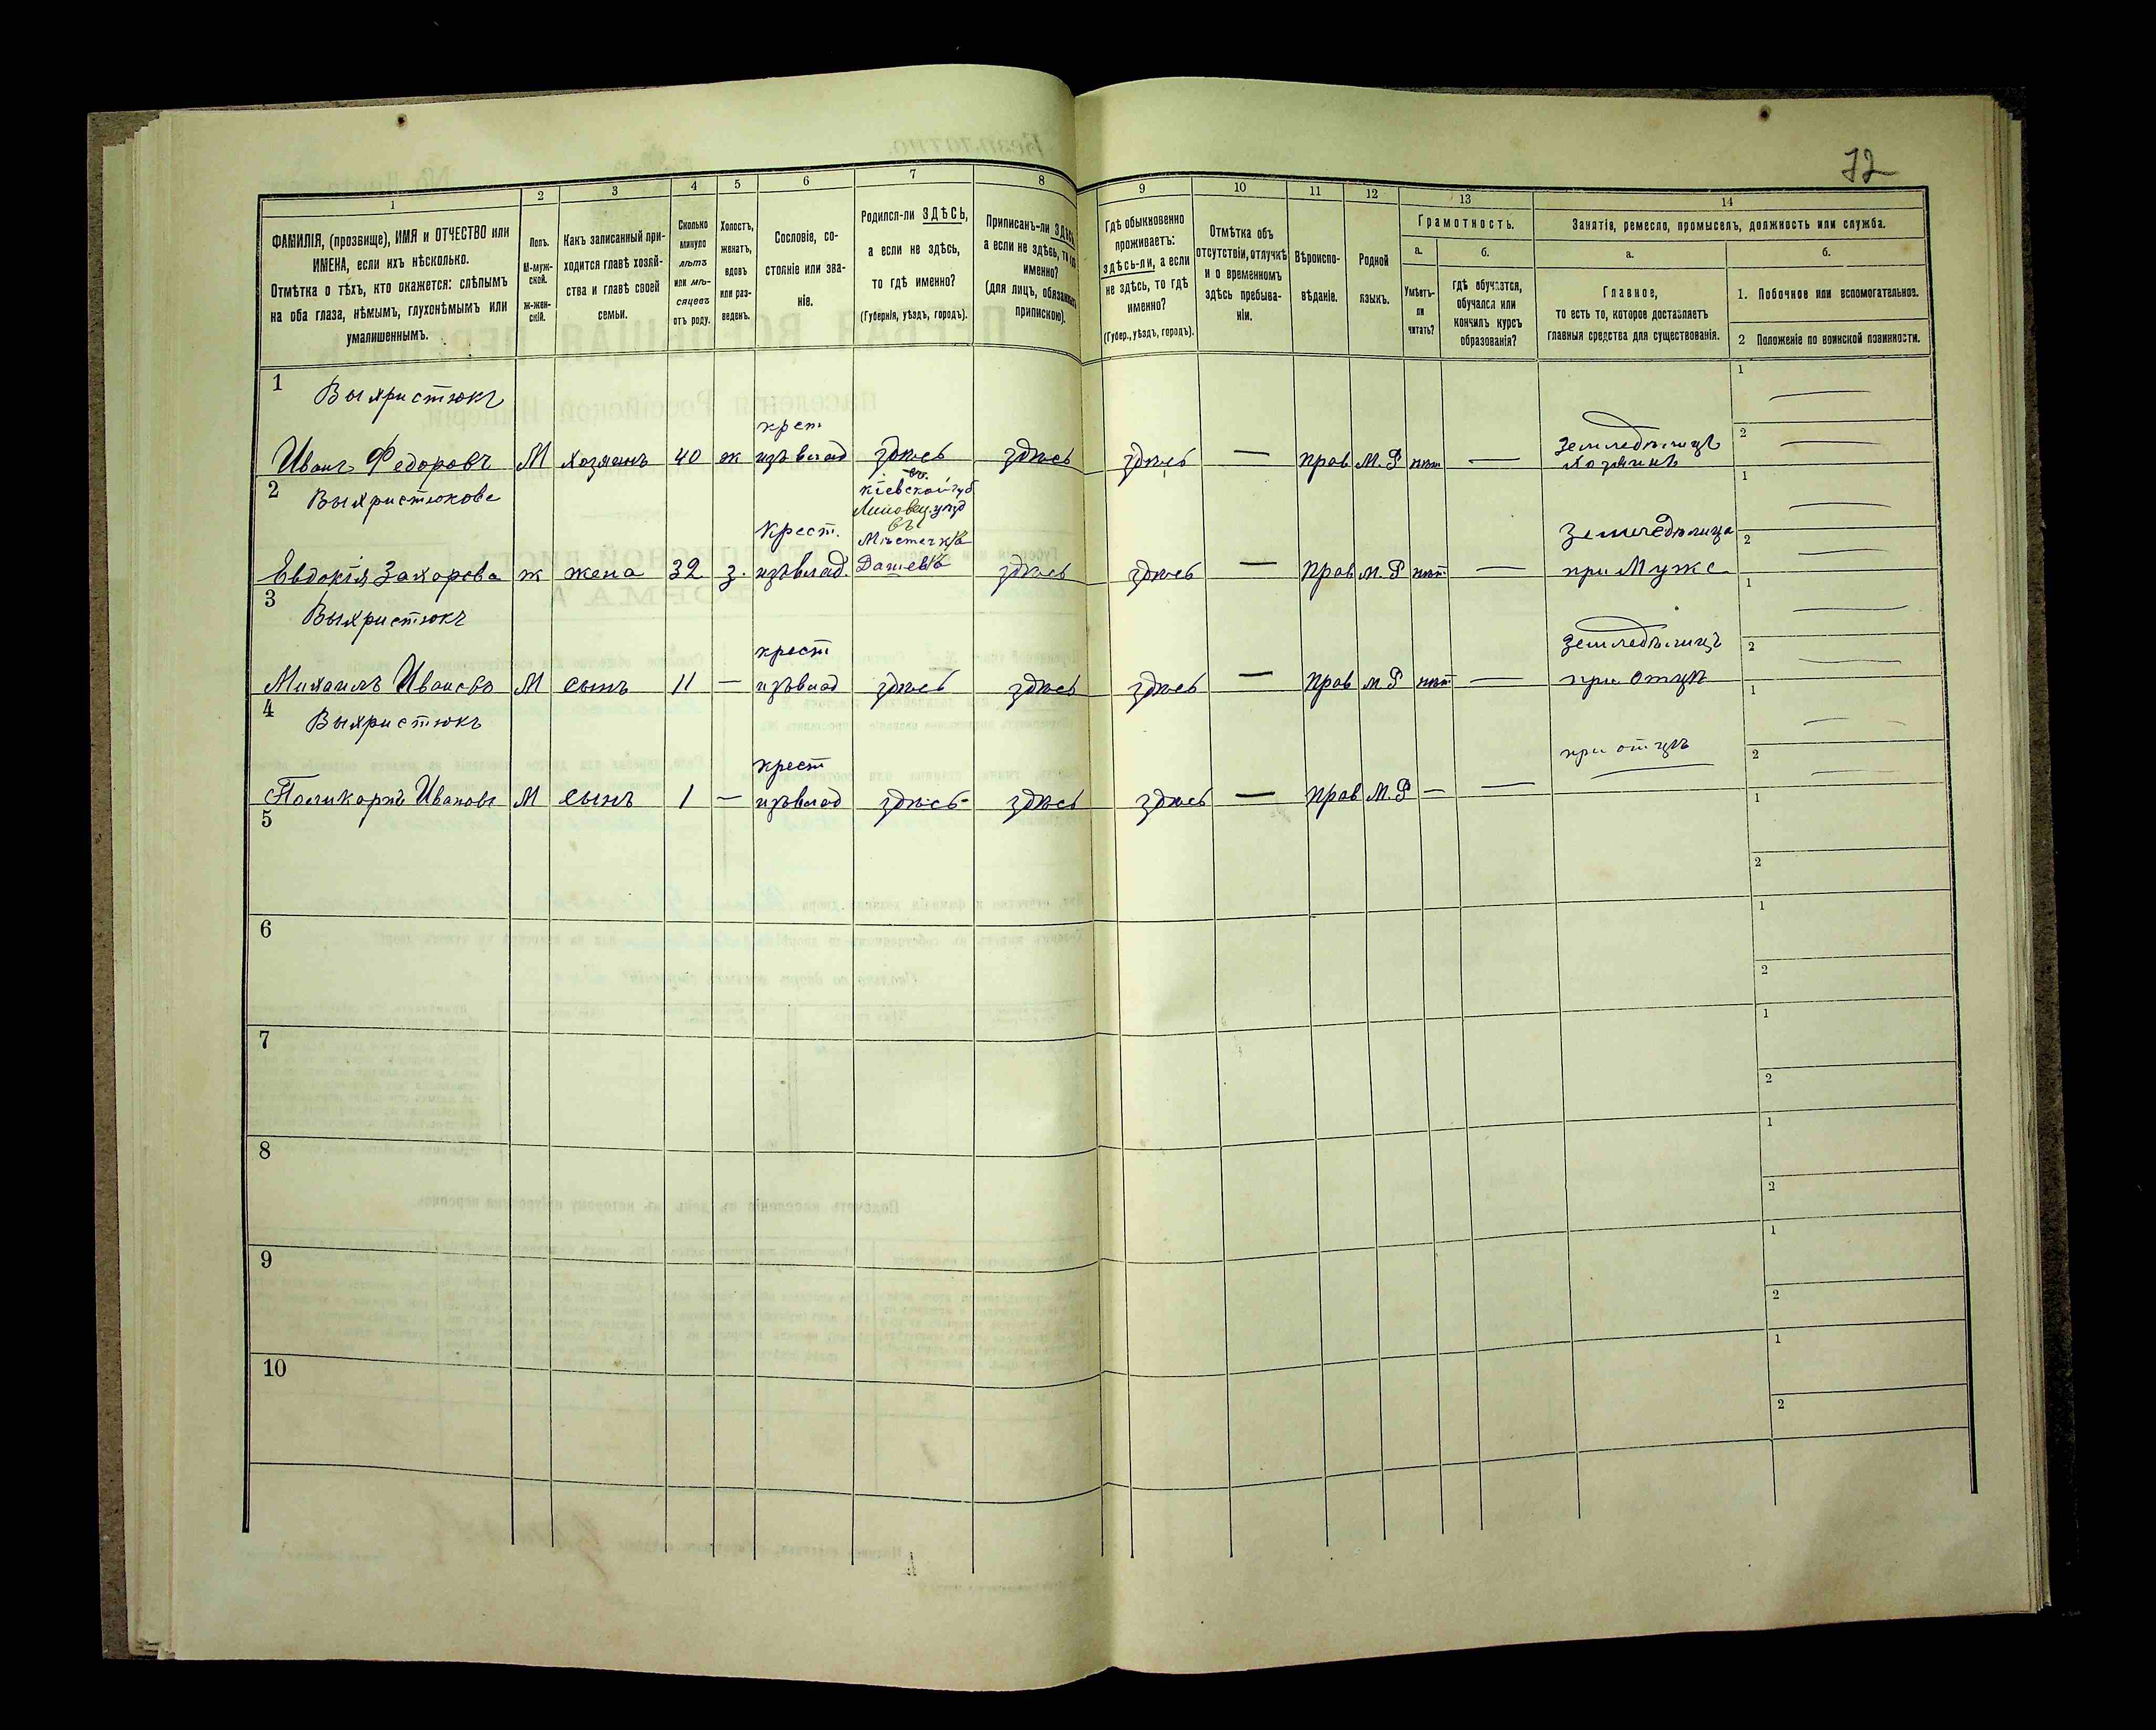 72
1 2 3 4 5 6 7 8 9 10 11 12 13 14
ФАМИЛІЯ, (прозвище), ИМЯ и ОТЧЕСТВО или
ИМЕНА, если ихъ нѣсколько.
Отмѣтка о тѣхъ, кто окажется: слѣпымъ
на оба глаза, нѣмымъ, глухонѣмымъ или
умалишеннымъ.
Полъ.
М-муж-
ской.
Ж-жен-
скій.
Какъ записанный при-
ходится главѣ хозяй-
ства и главѣ своей
семьи.
Сколько
минуло
лѣтъ
или мѣ-
сяцевъ
отъ роду.
Холостъ,
женатъ,
вдовъ
или раз-
веденъ.
Сословіе, со-
стояніе или зва-
ніе.
Родился-ли ЗДѢСЬ,
а если не здѣсь,
то гдѣ именно?
(Губернія, уѣздъ, городъ).
Приписанъ-ли ЗДѢСЬ,
а если не здѣсь, то гдѣ
именно?
(для лицъ, обязанныхъ
припиской).
Гдѣ обыкновенно
проживаетъ:
здѣсь-ли, а если
не здѣсь, то гдѣ
именно?
(Губер., уѣздъ, городъ).
Отмѣтка объ
отсутствіи, отлучкѣ
и о временномъ
здѣсь пребыва-
ніи.
Вѣроиспо-
вѣданіе.
Родной
языкъ.
Грамотность.
а.
Умѣетъ-
ли
читать?
б.
гдѣ обучается,
обучался или
кончилъ курсъ
образованія?
Занятія, ремесло, промыселъ, должность или служба.
а.
Главное,
то есть то, которое доставляетъ
главныя средства для существованія.
б.
1. Побочное или вспомогательное.
2 Положеніе по воинской повинности.
1 Выхристюкъ
крест
Иванъ Федоровъ М хозяинъ 40 ж изъ влад здѣсь здѣсь здѣсь — прав М.Р нѣт — земледѣлецъ хозяинъ
1 —
2 —
2 Выхристюкова
въ
Кіевской губ
Липовец. уѣзд
въ
Крест. Мѣстечкѣ
Евдокія Захарова ж жена 32 з. изъ влад. Дашевѣ здѣсь здѣсь — Прав М.Р нѣт — земледѣлица при Муже
1 —
2 —
3 Выхристюкъ
крест
Михаилъ Ивановъ М сынъ 11 — изъ влад здѣсь здѣсь здѣсь — Прав М Р нѣт — земледѣлецъ при отцѣ
1 —
2 —
4 Выхристюкъ
крест
Поликарпъ Ивановъ М сынъ 1 — изъ влад здѣсь здѣсь здѣсь — Прав М.Р — — при отцѣ
1 —
2 —
5
1
2
6
1
2
7
1
2
8
1
2
9
1
2
10
1
2